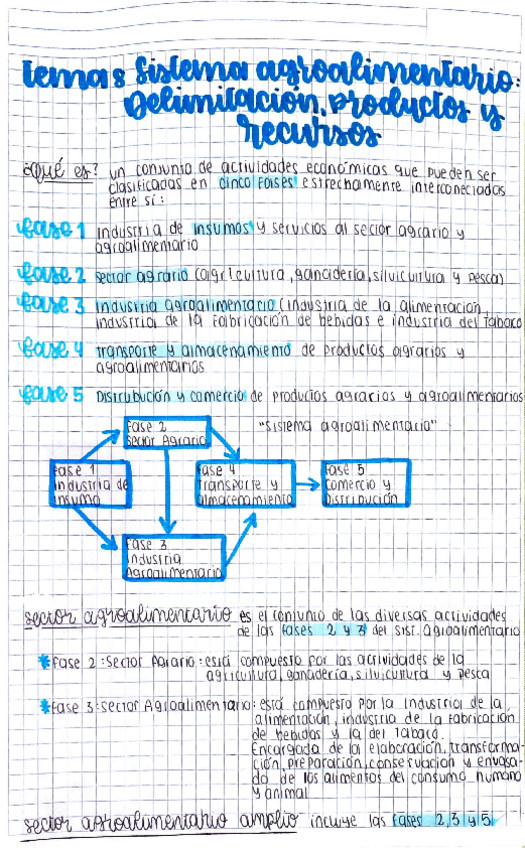 tema 8 Sistema agroalimentario:
Delimitación, productos y
recursos
¿Qué es? un conjunto de actividades económicas que pueden ser
clasificadas en cinco fases estrechamente interconectadas
entre sí:
fase 1 Industria de insumos y servicios al sector agrario y
agroalimentario
fase 2 sector agrario (agricultura, ganadería, silvicultura y pesca)
fase 3 Industria agroalimentario (industria de la alimentación,
industria de la fabricación de bebidas e industria del tabaco
fase 4 transporte y almacenamiento de productos agrarios y
agroalimentarios
fase 5 Distrubución y comercio de productos agrarios y agroalimentarios
Fase 2
Sector Agrario
"sistema agroalimentario"
Fase 1
industria de
insumo
Fase 4
Transporte y
almacenamiento
Fase 5
Comercio y
Distribución
Fase 3
Industria
Agroalimentario
sector agroalimentario es el conjunto de las diversas actividades
de las fases 2 y 3 del sist. agroalimentario
*Fase 2: Sector Agrario: está compuesto por las actividades de la
agricultura, ganadería, silvicultura y pesca
*Fase 3: Sector Agroalimentario: está compuesto por la industria de la
alimentación, industria de la fabricación
de bebidas y la del tabaco.
Encargada de la elaboración, transforma-
ción, preparación, conservación y envasa-
do de los alimentos del consumo humano
y animal
sector agroalimentario amplio incluye las fases 2, 3 y 5